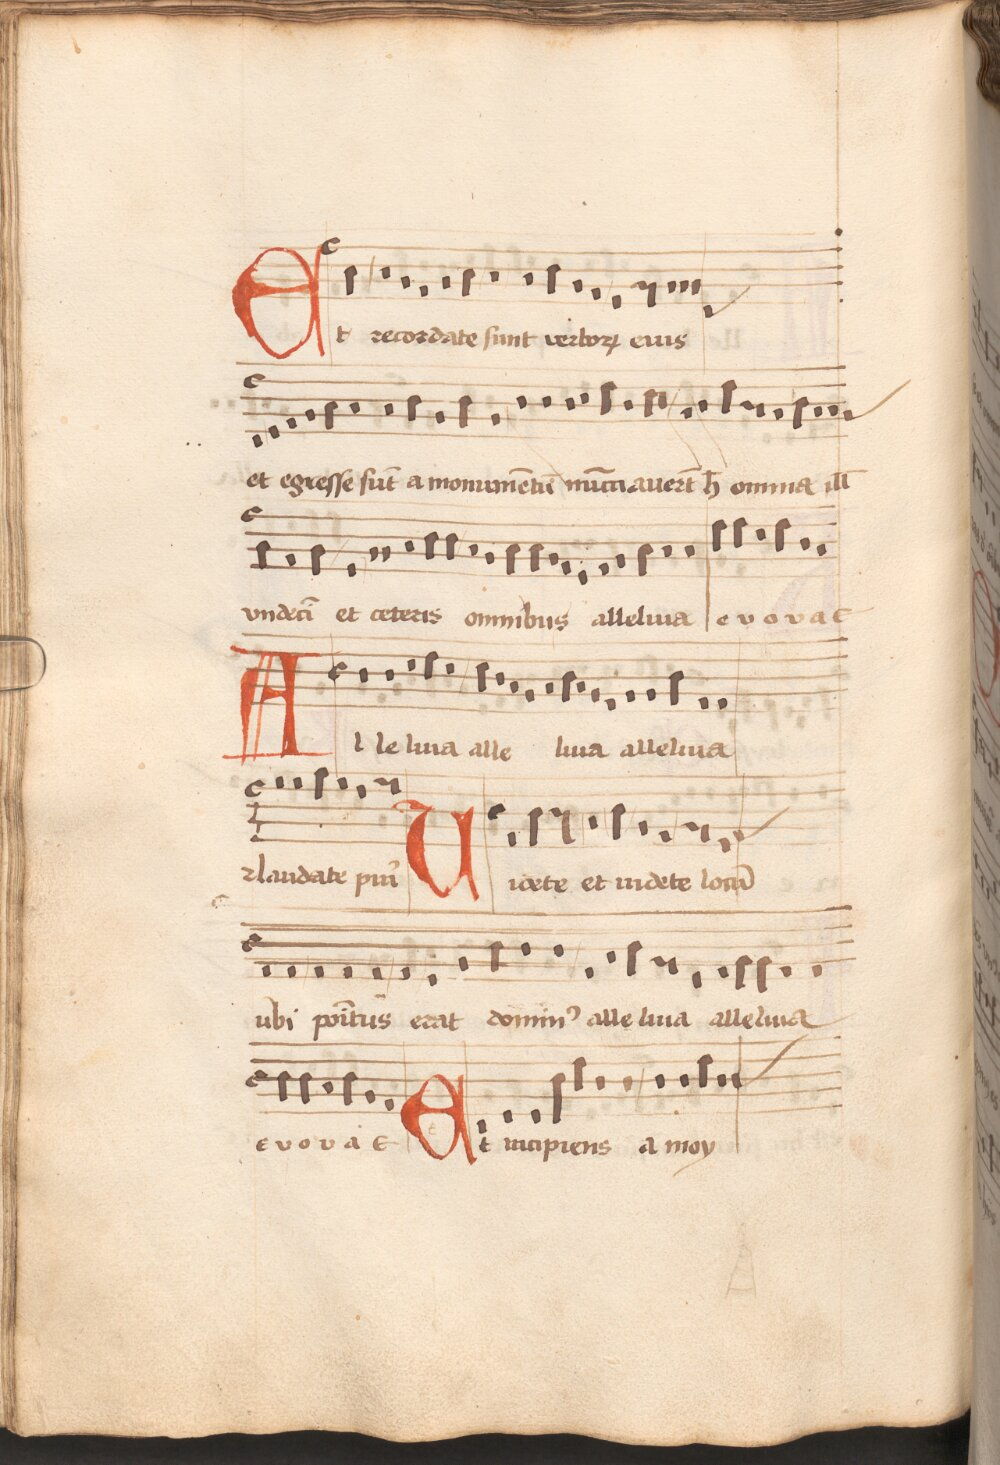 Et recordate sunt verboꝝ eius
et egresse sūt a monumētū nūcciauerūt h̄ omnia ill̄
vndecī et ceteris omnibus alleluia e v o v a e
Al le luia alle luia alleluia
laudate pūi Uidete et uidete locū
ubi poītus erat dominꝰ alleluia alleluia
e v o v a e Et incipiens a moy